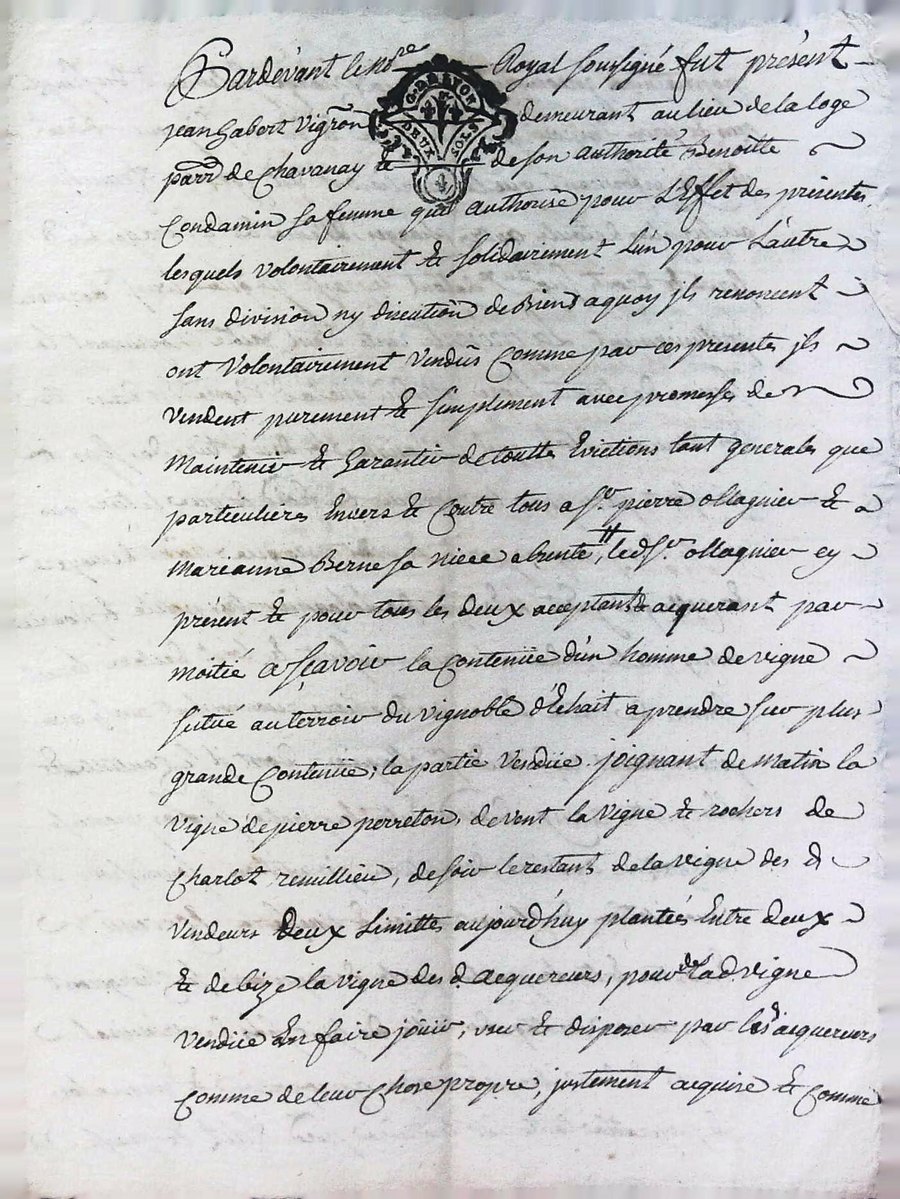 Pardevant le no.re Royal soussigné fut présent
G. DE LYON
DEUX SOLS
jean Gabert Vigñon demeurant au lieu de la loge
parr de Chavanay & de son authorité Benoitte
Condamin sa femme quil authorise pour L'Effet des présentes
lesquels volontairement & solidairement L'un pour L'autre
sans division ny discution de Biens aquoy jls renoncent
ont Volontairement Vendus Comme par ces presentes jls
Vendent purement & simplement avec promesses de
Maintenir & Garantir de touttes Evictions tant generales que
particulieres Envers & Contre tous a Sr. pierre ollagnier &
Marianne Berne sa niece absente, led Sr. ollagnier cy
présent & pour tous les deux acceptant & acquerant par
moitié a sçavoir la Contenüe d'un homme de vigne
situé au terroir du vignoble d'Echait a prendre sur plus
grande Contenüe; la partie Vendüe joignant de matin la
Vigne de pierre perreton, de vent la Vigne & rochers de
Charlot remillieu, de soir le restant de la vigne des d
Vendeurs Deux Limittes aujourd'huy plantées Entre deux
& de bize la vigne des d. acquereurs, pour de lad vigne
Vendüe En faire joüir, user & disposer par les d acquereurs
Comme de leur Chose propre, justement acquise & Comme